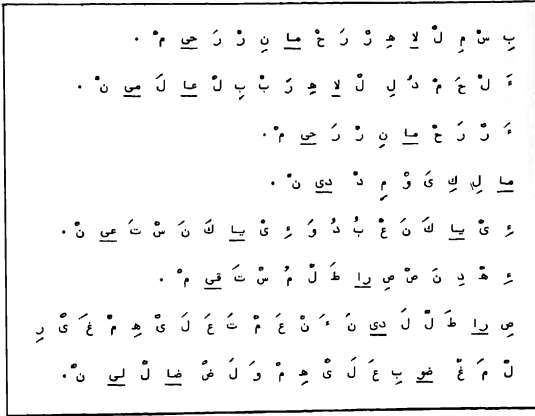 بِ سْ مِ لْ لا هِ رْ رَ حْ ما نِ رْ رَ حى مْ .
ءَ لْ حَ مْ دُ لِ لْ لا هِ رَ بْ بِ لْ عا لَ مى نْ .
ءَ رْ رَ حْ ما نِ رْ رَ حى مْ.
ما لِ كِ ىَ وْ مِ دْ دى نْ .
ءِ ىْ يا كَ نَ عْ بُ دُ وَ ءِ ىْ يا كَ نَ سْ تَ عى نْ.
ءِ هْ دِ نَ صْ صِ را طَ لْ مُ سْ تَ قى مْ .
صِ را طَ لْ لَ دى نَ ءَ نْ عَ مْ تَ عَ لَ ىْ هِ مْ غَ ىْ رِ
لْ مَ غْ ضو بِ عَ لَ ىْ هِ مْ وَ لَ ضْ ضا لْ لى نْ.